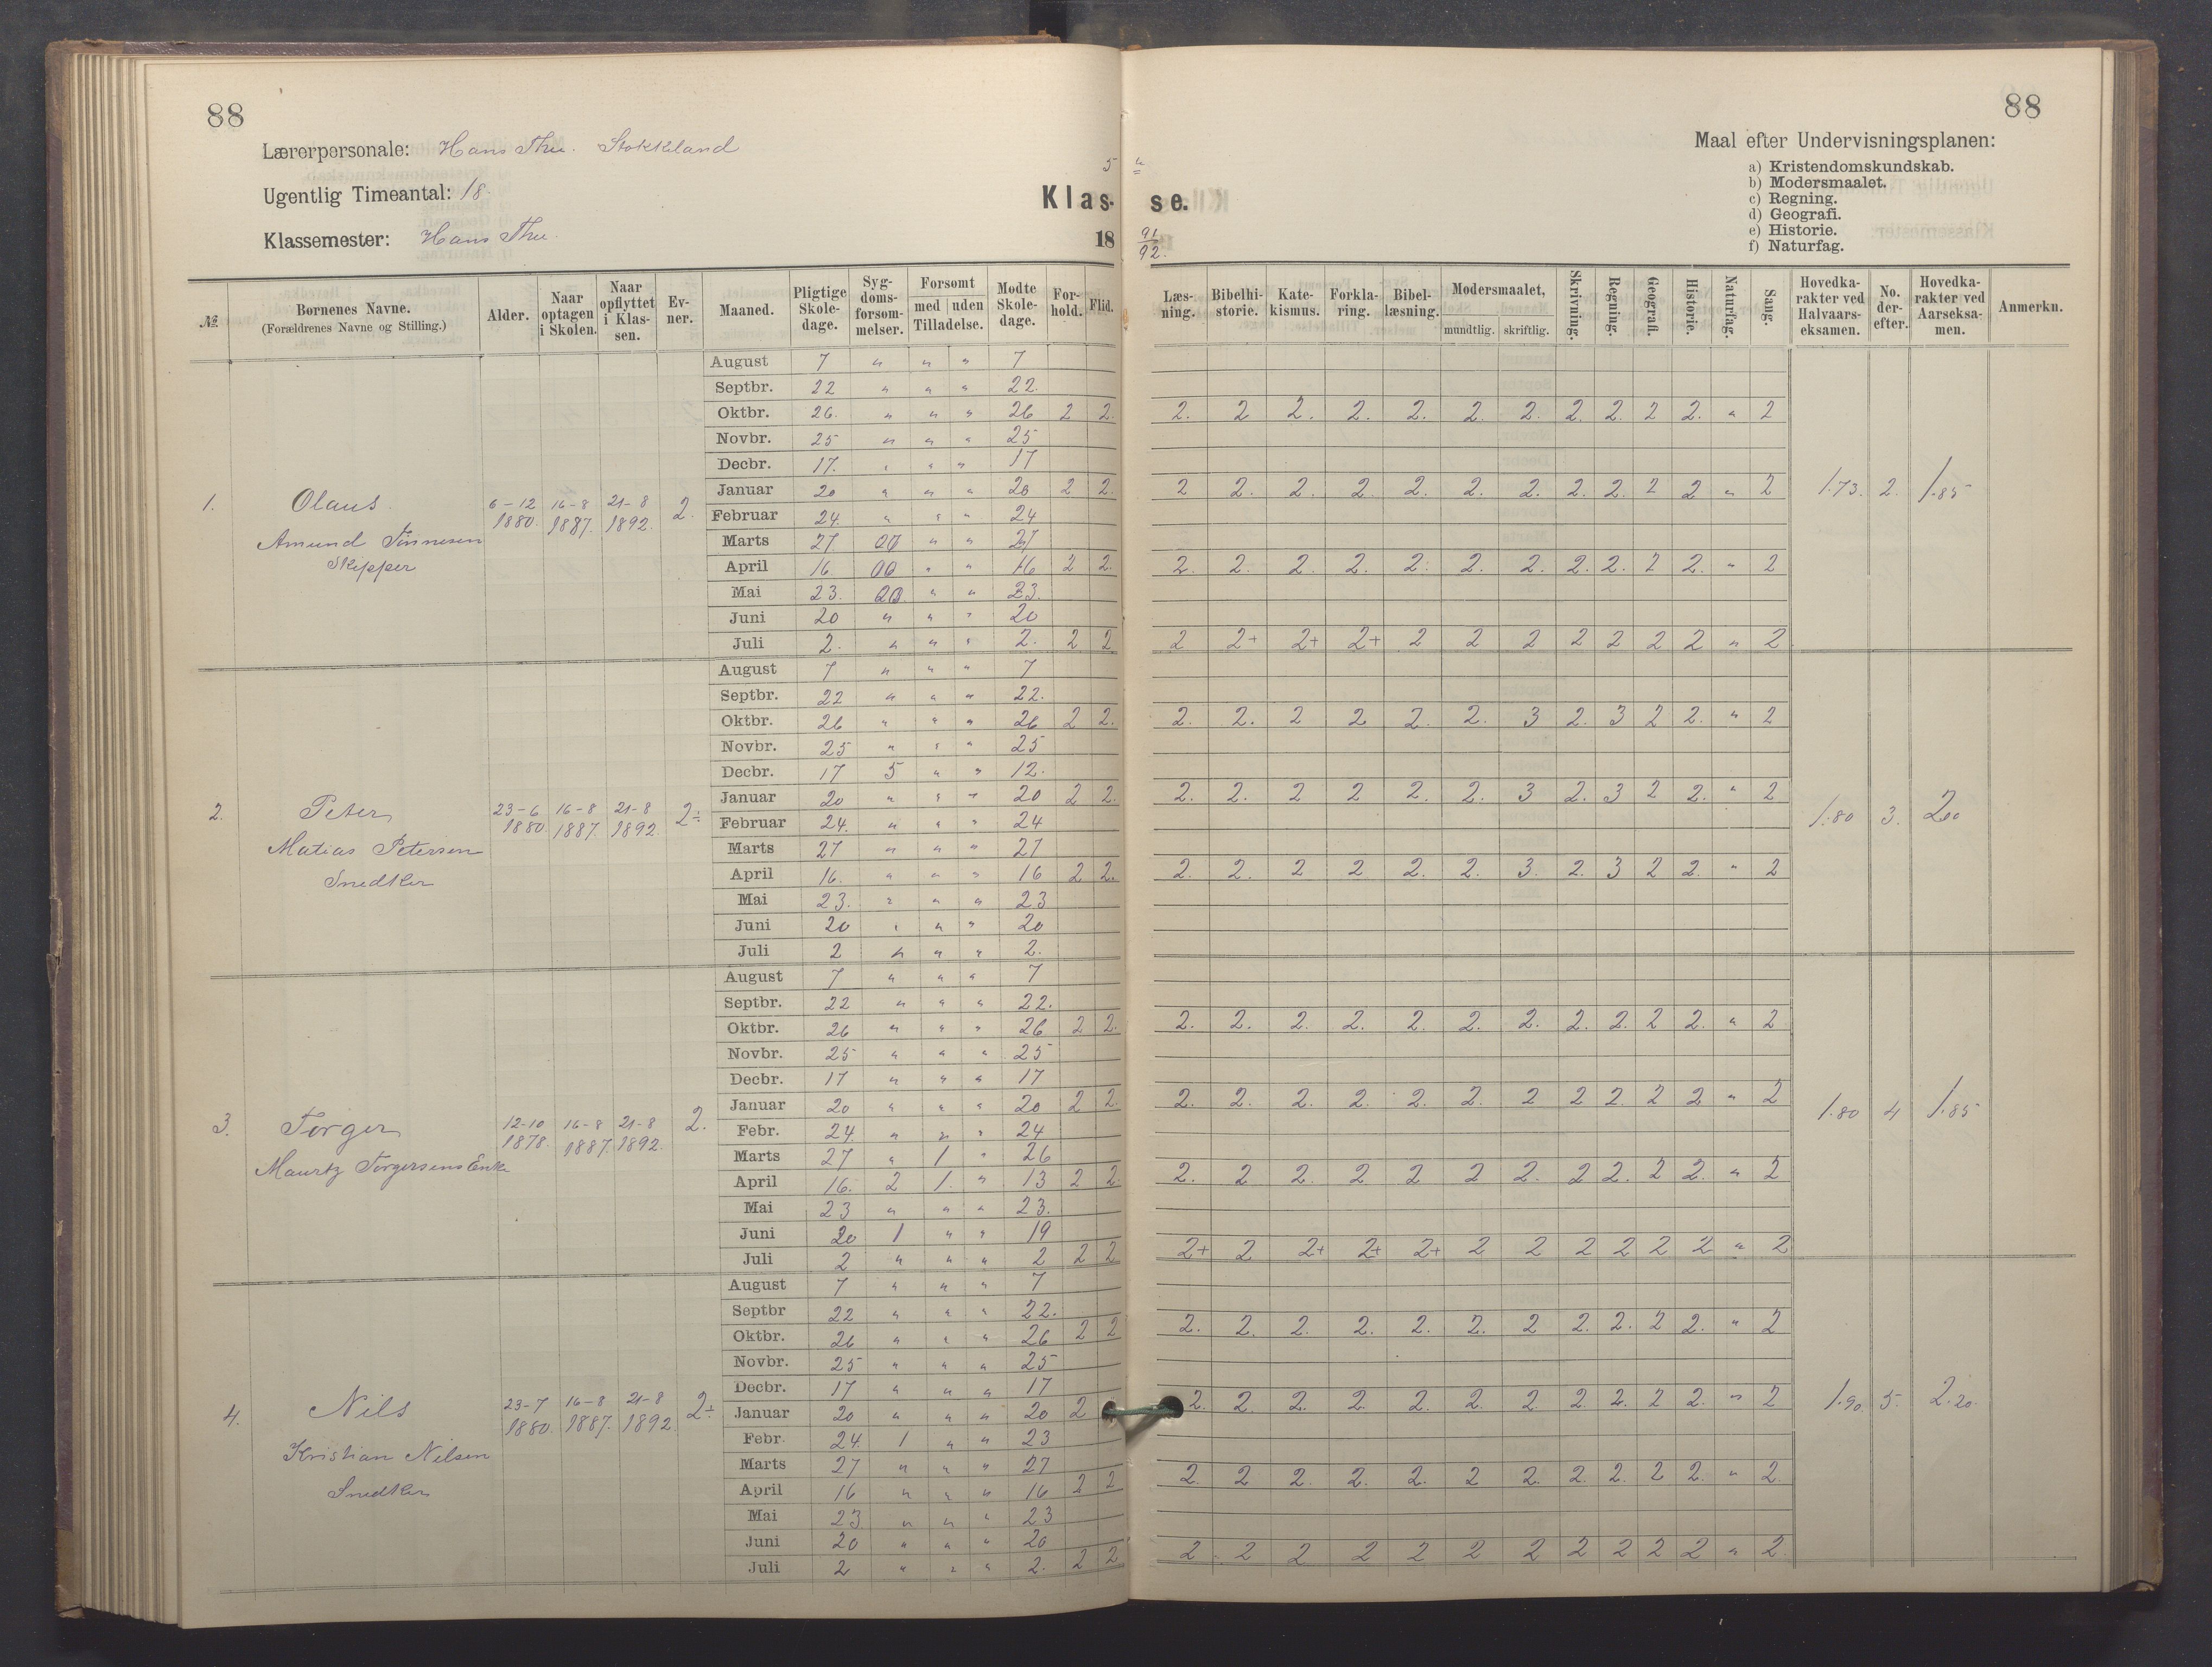 88
88
Lærerpersonale: Hans Thu. Stokkeland
Ugentlig Timeantal: 18.
Klassemester: Hans Thu.
5
Klas- se.
18 91/92.
Maal efter Undervisningsplanen:
a) Kristendomskundskab.
b) Modersmaalet.
c) Regning.
d) Geografi.
e) Historie.
f) Naturfag.
№ Børnenes Navne. (Forældrenes Navne og Stilling.) Alder. Naar optagen i Skolen. Naar opflyttet i Klassen. Evner. Maaned. Pligtige Skoledage. Sygdomsforsømmelser. Forsømt med uden Tilladelse. Mødte Skoledage. Forhold. Flid. Læsning. Bibelhistorie. Katekismus. Forklaring. Bibellæsning. Modersmaalet, mundtlig. skriftlig. Skrivning. Regning. Geografi. Historie. Naturfag. Sang. Hovedkarakter ved Halvaarseksamen. No. derefter. Hovedkarakter ved Aarseksamen. Anmerkn.
1. Olaus. Amund Tönnesen Skipper 6-12 1880. 16-8 1887. 21-8 1892. 2. 1.73. 2. 1.85
August 7 " " " 7
Septbr. 22 " " " 22.
Oktbr. 26. " " " 26 2 2. 2. 2 2. 2. 2. 2. 2. 2. 2. 2 2. " 2
Novbr. 25 " " " 25
Decbr. 17. " " " 17
Januar 20 " " " 20 2 2. 2 2. 2. 2. 2. 2. 2. 2. 2. 2 2 " 2
Februar 24. " " " 24
Marts 27. " " 27
April 16. " " 16 2 2. 2. 2. 2. 2. 2. 2. 2. 2. 2. 2 2. " 2
Mai 23. " " 23.
Juni 20 " " " 20
Juli 2. " " " 2. 2. 2 2 2+ 2+ 2+ 2 2 2 2 2 2 2 " 2
2. Peter Matias Petersen Snedker 23-6 1880. 16-8 1887. 21-8 1892. 2÷ 1.80 3. 2.00
August 7 " " " 7
Septbr. 22 " " " 22.
Oktbr. 26 " " " 26 2 2. 2. 2. 2 2 2. 2. 3 2. 3 2 2. " 2
Novbr. 25 " " " 25
Decbr. 17 5 " " 12.
Januar 20 " " " 20 2 2. 2. 2. 2 2 2. 2. 3 2. 3 2 2. " 2
Februar 24. " " " 24
Marts 27 " " " 27
April 16. " " " 16 2 2. 2. 2. 2 2 2. 2. 3. 2. 3 2 2. " 2
Mai 23. " " " 23
Juni 20 " " " 20
Juli 2 " " " 2.
3. Torger Mauritz Torgersens Enke 12-10 1878. 16-8 1887. 21-8 1892. 2. 1.80 4 1.85
August 7 " " " 7
Septbr. 22 " " " 22.
Oktbr. 26 " " " 26 2 2. 2. 2. 2. 2. 2. 2. 2. 2. 2. 2 2. " 2
Novbr. 25 " " " 25
Decbr. 17 " " " 17
Januar 20 " " " 20 2 2. 2. 2. 2. 2. 2. 2. 2 2 2. 2 2 " 2
Febr. 24. " " " 24
Marts 27 " 1 " 26
April 16. 2 1. " 13 2 2. 2. 2 2. 2 2 2 2. 2 2. 2 2. " 2
Mai 23 " " " 23.
Juni 20 1 " " 19
Juli 2 " " " 2 2 2 2+ 2 2+ 2+ 2+ 2 2 2 2 2 2 " 2
4. Nils Kristian Nilsen Snedker 23-7 1880. 16-8 1887. 21-8 1892. 2÷ 1.90. 5. 2.20.
August 7 " " " 7
Septbr 22 " " " 22.
Oktbr. 26 " " " 26 2 2 2. 2. 2. 2. 2. 2. 2 2. 2. 2 2. " 2
Novbr. 25 " " " 25
Decbr. 17 " " " 17
Januar 20 " " " 20 2 2. 2. 2. 2. 2. 2. 2 2. 2. 2 2. " 2
Febr. 24. 1 " " 23
Marts 27 " " " 27
April 16 " " " 16 2 2 2. 2 2. 2. 2. 2 2. 2. 2. 2 2. " 2.
Mai 23 " " " 23
Juni 20 " " " 20
Juli 2 " " " 2. 2 2 2 2 2 2 2 2 2 2 2 2 2 " 2.